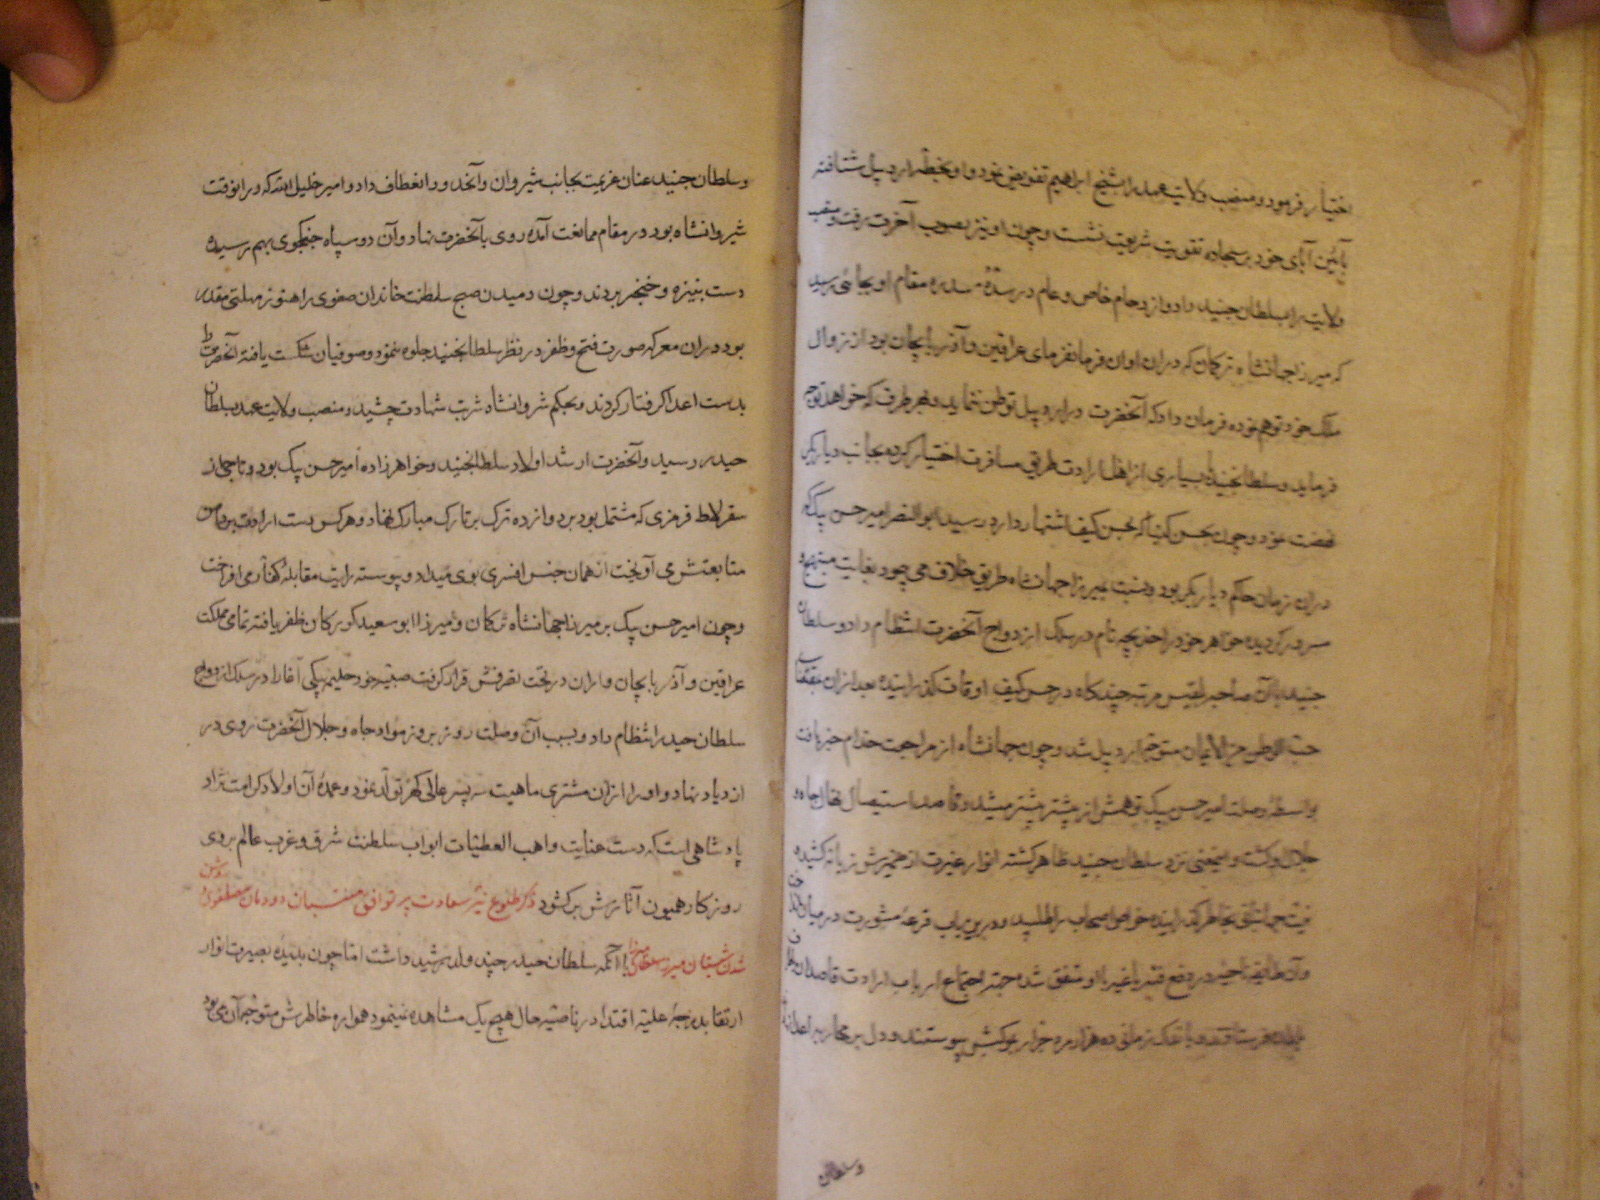 اختیار فرمود و منصب ولایت عهد را بشیخ ابراهیم تفویض نمود و او بخطهٔ اردبیل شتافته
بآئین آبای خود بر سجاده تقویت شریعت نشست و چون او نیز بصوب آخرت رفت و منصب
ولایت را بسلطان جنید داد و ازدحام خاص و عام در سدهٔ سدره مقام او بجائی رسید
که میرزا جهانشاه ترکمان که دران اوان فرمانفرمای عراقین و آذربایجان بود از زوال
ملک خود توهم نموده فرمان داد که آنحضرت در اردبیل توطن ننماید و بهر طرف که خواهد توجه
فرماید و سلطان جنید با بسیاری از اهل ارادت طریق مسافرت اختیار کرده بجانب دیار بکر
نهضت نمود و چون بحصن کیفا که بحسن کیف اشتهار دارد رسید ابوالنصر امیر حسن بیک که
دران زمان حاکم دیار بکر بود و نسبت بمیرزا جهانشاه طریق خلاف می پیمود بغایت مبتهج و
مسرور گردیده خواهر خود را خدیجه نام در سلک ازدواج آنحضرت انتظام داد و سلطان
جنید با آن صاحبه بلقیس مرتبه چندگاه در حصن کیف اوقات گذرانیده بعد ازان بمقتضای
حب الوطن من الایمان متوجه اردبیل شد و چون جهانشاه از مراجعت خدام خبر یافت
بواسطهٔ وصلت امیر حسن بیک توهمش از پیشتر بیشتر میشد و قاصد استیصال نهال جاه و
جلال او گشت و اینمعنی نزد سلطان جنید ظاهر گشته انوار غیرت از ضمیرش زبانه کشیده
نیت جهانستانی بخاطر گذرانیده خواص اصحاب را طلبید و درین باب قرعهٔ مشورت در میان انداخت
و آن طایفه ناجیه در دفع فتنه باغیه با او متفق شده جهت اجتماع ارباب ارادت قاصدان باطراف
بلدان فرستادند و باندک زمانی ده هزار مرد جرار بموکبش پیوستند و دل بر محاربه اعدا نهادند
وسلطان
و سلطان جنید عنان عزیمت بجانب شیروان و آنحدود انعطاف داد و امیر خلیل الله که درانوقت
شیروانشاه بود در مقام ممانعت آمده روی بآنحضرت نهاد و آن دو سپاه جنکجوی بهم رسیده
دست بنیزه و خنجر بردند و چون دمیدن صبح سلطنت خاندان صفوی را هنوز مهلتی مقدر
بود دران معرکه صورت فتح و ظفر در نظر سلطانجنید جلوه ننمود و صوفیان شکست یافته آنحضرت را
بدست اعدا گرفتار کردند و بحکم شروانشاه شربت شهادت چشید و منصب ولایت عهد بسلطان
حیدر رسید و آنحضرت ارشد اولاد سلطانجنید و خواهرزاده امیر حسن بیک بود و تاجی از
سقرلاط قرمزی که مشتمل بود بر دوازده ترک بر تارک مبارک نهاد و هرکس دست ارادت بدامن
متابعتش می آویخت از همان جنس افسری بوی میداد و پیوسته رایت مقابلهٔ کفار می افراخت
و چون امیر حسن بیک بر میرزا جهانشاه ترکمان و میرزا ابوسعید کورکان ظفر یافته تمامی مملکت
عراقین و آذربایجان و اران در تحت تصرفش قرار گرفت صبیه خود حلیمه بیکی آغا را در سلک ازدواج
سلطان حیدر انتظام داد و بسبب آن وصلت روز بروز مواد جاه و جلال آنحضرت روی در
ازدیاد نهاد و او را ازان مشتری ماهیت سه پسر عالی گهر تولد نمود و عمدهٔ آن اولاد کرامت نژاد
پادشاهی است که دست عنایت واهب العطیات ابواب سلطنت شرق و غرب عالم بروی
روزکار همیون آثارش برکشود ذکر طلوع نیر سعادت پرتو افق منتسبان دودمان مصطفوی و روشن
شدن شبستان میرزا سلطان با آنکه سلطان حیدر چند ولد رشید داشت اما چون بدیدهٔ بصیرت انوار
ارتقا بدرجهٔ علیه اقتدا در ناصیه حال هیچ یک مشاهده نمینمود همواره خاطرش متوجه آن می بود